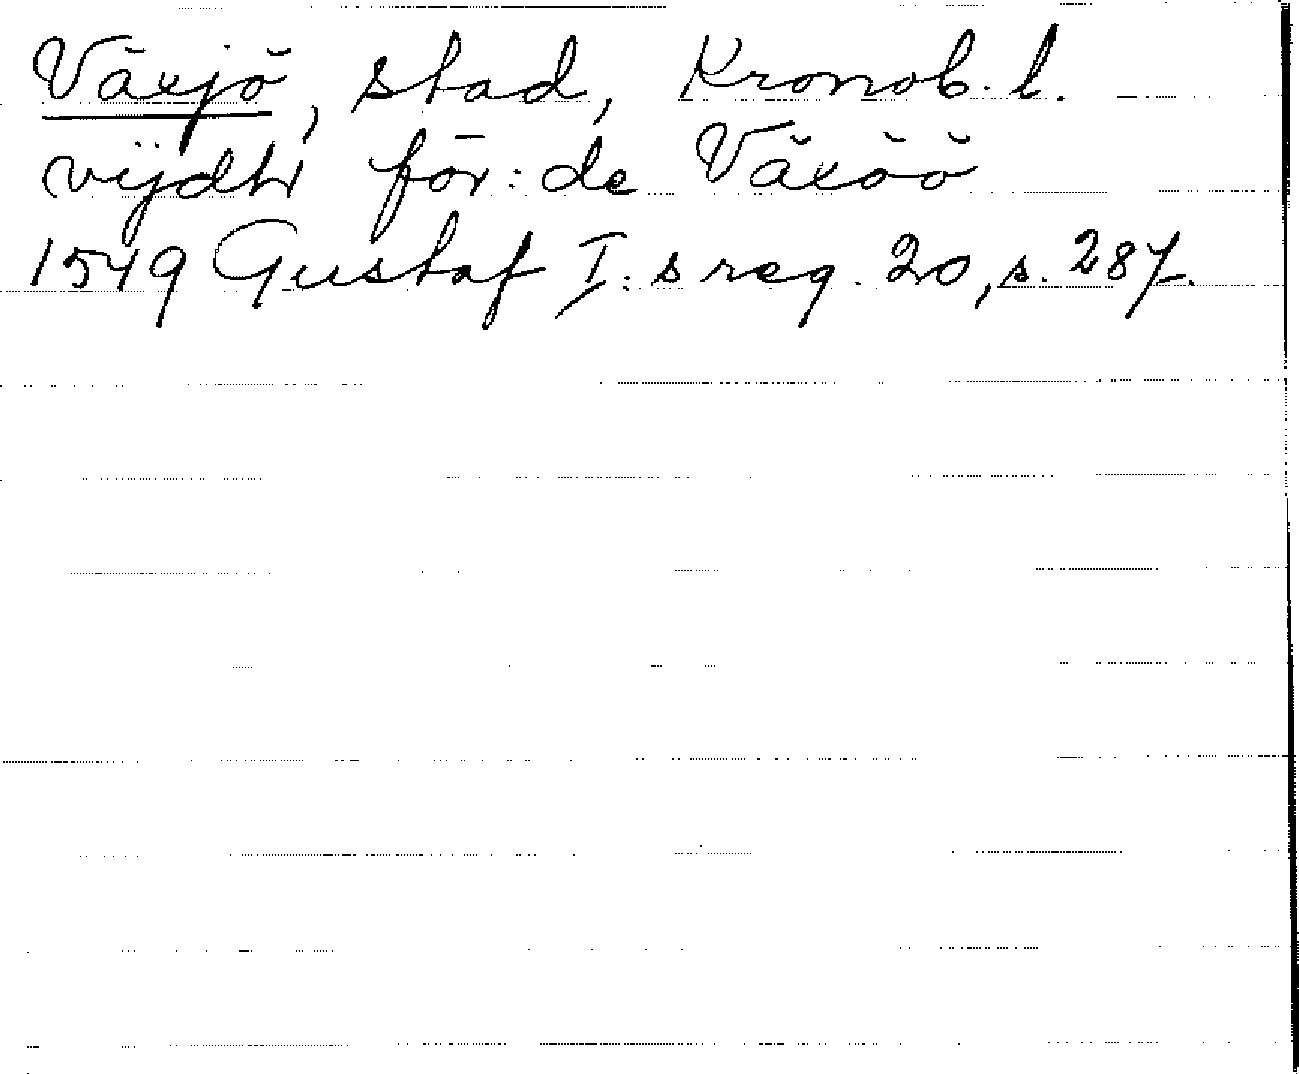 Växjö, stad, Kronob. l.
vijdh för: de Växöö
1549 Gustaf I: s reg. 20, s. 287.